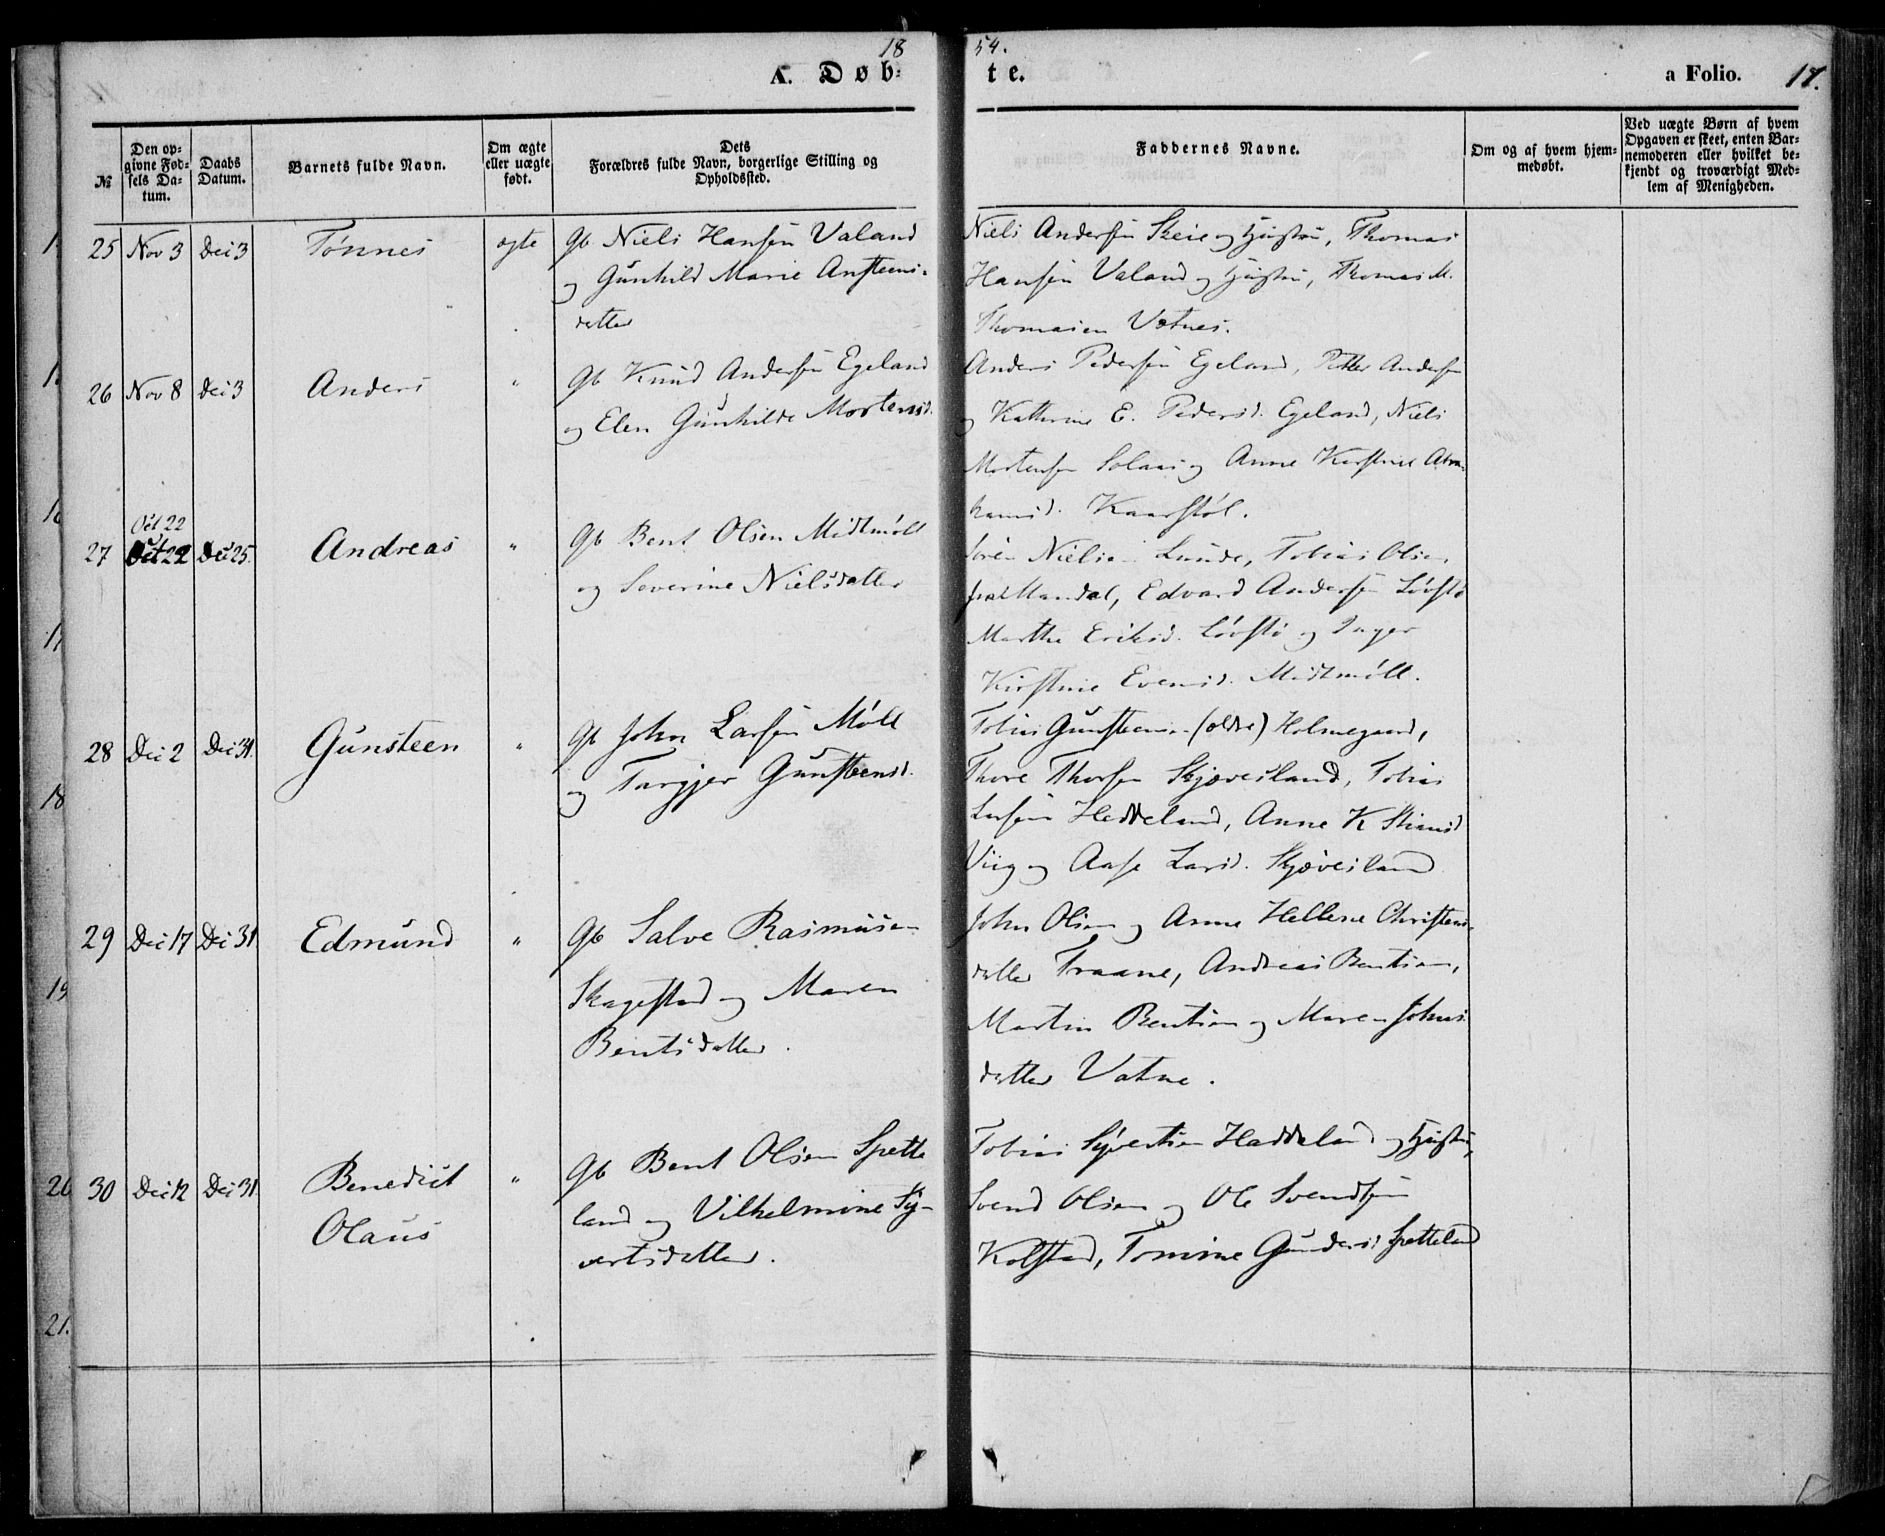 1854.
A. Døbte.
a Folio. 17.
№
Den opgivne Fødsels Datum.
Daabs Datum.
Barnets fulde Navn.
Om ægte eller uægte født.
Dets Forældres fulde Navn, borgerlige Stilling og Opholdssted.
Faddernes Navne.
Om og af hvem hjemmedøbt.
Ved uægte Børn af hvem Opgaven er skeet, enten Barnemoderen eller hvilket bekjendt og troværdigt Medlem af Menigheden.
25 Nov 3 Dec 3 Tønnes ægte Gb Niels Hansen Valand
og Gunhild Marie Ansteens-
datter
Niels Andersen Skeie og Hustru, Thomas
Hansen Valand og Hustru, Thomas M.
Thomasen Vatnes.
26 Nov 8 Dec 3 Anders " Gb Knud Andersen Egeland
og Elen Gunhilde Mortensd.
Anders Pedersen Egeland, Petter Andersen
og Kathrine E. Pedersd. Egeland, Niels
Mortensen Solaas og Anne Kirstine Abra-
hamsd. Kaarstøl.
Oct 22
27 Oct 22 Dec 25. Andreas " Gb Bent Olsen Midtmøll
og Severine Nielsdatter
Sørén Nielsen Lunde, Tobias Olsen
Mandal, Edvard Andersen Løvstø
Marthe Eriksd. Løvstø og Inger
Kirstine Evensd. Midtmøll.
28 Dec 2 Dec 31. Gunsteen " Gb John Larsen Møll
og Targjer Gunsteensd.
Tobias Gunsteensen (ældre) Holmegaard,
Thore Thorsen Skjøvesland, Tobias
Larsen Heddeland, Anne K
Viig og Aase Larsd. Skjøvesland
29 Dec 17 Dec 31 Edmund " Gb Salve Rasmusen
Skagestad og Maren
Bentsdatter.
John Olsen og Anne Hellene Christens-
datter Traane, Andreas Bentsen,
Martin Bentsen og Maren Johns-
datter Vatne.
30 Dec 12 Dec 31 Benedict
Olaus
" Gb Bent Olsen Spette-
land og Vilhelmine Sy-
vertsdatter.
Tobias Syvertsen Haddeland og Hustru,
Svend Olsen og Ole Svendsen
Kolstad, Tomine Gundersd. Spetteland
18
19
20
21.